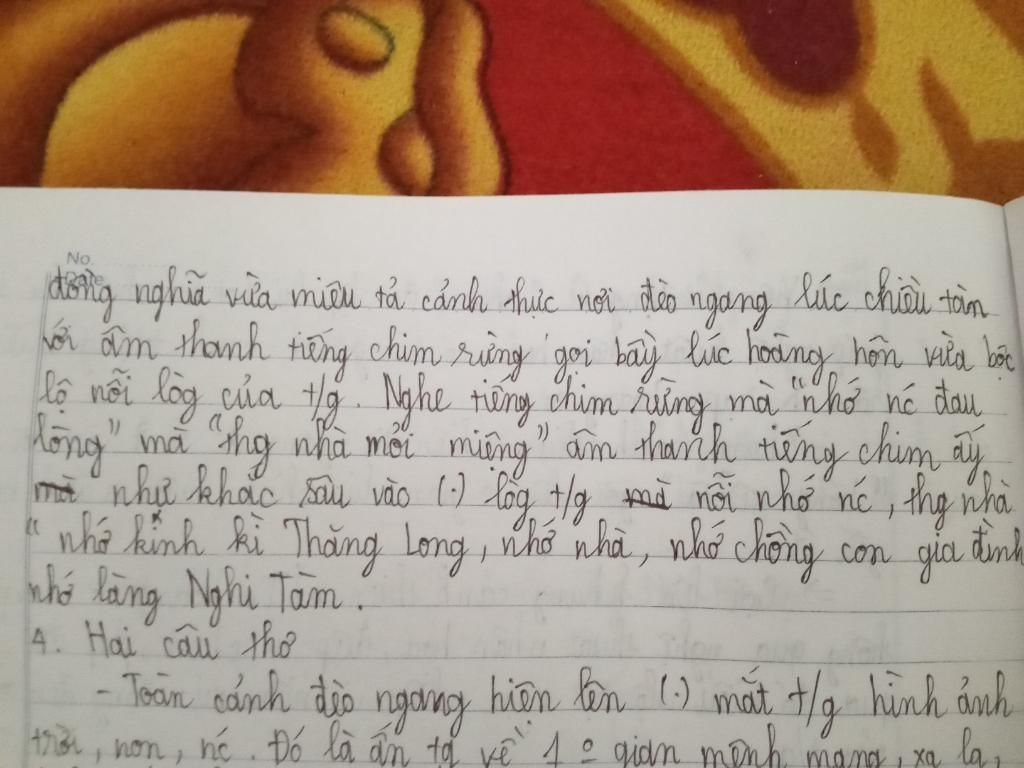 No.
đồng nghĩa vừa miêu tả cảnh thực nơi đèo ngang lúc chiều tàn
với âm thanh tiếng chim rừng gọi bầy lúc hoàng hôn vừa bộc
lộ nỗi lòg của t/g. Nghe tiếng chim rừng mà "nhớ nć đau
lòng" mà "thg nhà mỏi miệng" âm thanh tiếng chim ấy
như khắc sâu vào (.) lòg t/g nỗi nhớ nć, thg nhà
" nhớ kinh kì Thăng Long, nhớ nhà, nhớ chồng con gia đình
nhớ làng Nghi Tàm.
4. Hai câu thơ
- Toàn cảnh đèo ngang hiện lên (.) mắt t/g hình ảnh
trời, non, nć. Đó là ấn tg về 1 o gian mênh mang, xa lạ,